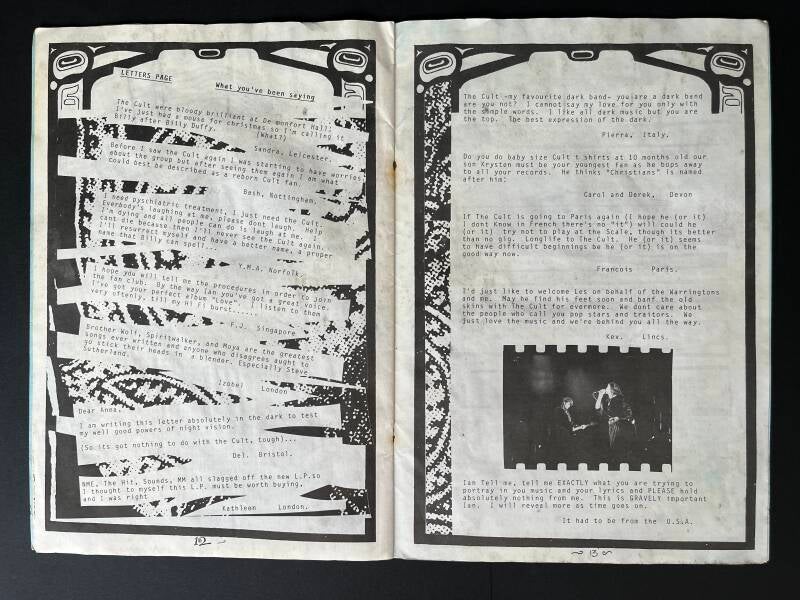 LETTERS PAGE
What you've been saying
The Cult were bloody brilliant at De monfort Hall.
I've just had a mouse for christmas so I'm calling it
Billy after Billy Duffy. (What?)
Sandra, Leicester.
Before I saw the Cult again I was starting to have worries
about the group but after seeing them again I am what
could best be described as a reborn Cult fan.
Bash, Nottingham.
I need psychiatric treatment, I just need the Cult.
Everybody's laughing at me, please dont laugh. Help
I'm dying and all people can do is laugh at me. I
cant die because then I'll never see the Cult again.
I'll resurrect myself and have a better name, a proper
name that Billy can spell.
Y.M.A. Norfolk.
I hope you will tell me the procedures in order to join
the fan club. By the way Ian you've got a great voice.
I've got your perfect album "Love". I listen to them
very oftenly, till my ears burst......
F.J. Singapore
Brother Wolf, Spiritwalker, and Moya are the greatest
songs ever written and anyone who disagrees aught to
go stick their heads in a blender. Especially Steve
Sutherland.
Izobel London
Dear Anna.
I am writing this letter absolutely in the dark to test
my well good powers of night vision.
(So its got nothing to do with the Cult, tough)...
Del. Bristol.
NME, The Hit, Sounds, MM all slagged off the new L.P.so
I thought to myself this L.P. must be worth buying,
and I was right
Kathleen London.
12
The Cult -my favourite dark band- you are a dark band
are you not? I cannot say my love for you only with
the simple words. I like all dark music but you are
the top. The best expression of the dark.
Pierra, Italy.
Do you do baby size Cult t shirts at 10 months old our
son Krysten must be your youngest fan as he bops away
to all your records. He thinks "Christians" is named
after him:
Carol and Derek, Devon
If The Cult is going to Paris again (I hope he (or it)
I dont Know in French there's no "it") will could he
(or it). try not to play at the Scale, though its better
than no gig. Longlife to The Cult. He (or it) seems
to Have difficult beginnings be he (or it) is on the
good way now.
Francois Paris.
I'd just like to welcome Les on behalf of the Warringtons
and me. May he find his feet soon and banf the old
skins with The Cult for evermore. We dont care about
the people who call you pop stars and traitors. We
just love the music and we're behind you all the way.
Kev. Lincs.
Ian Tell me, tell me EXACTLY what you are trying to
portray in you music and your lyrics and PLEASE hold
absolutely nothing from me. This is GRAVELY important
Ian. I will reveal more as time goes on.
It had to be from the U.S.A.
13